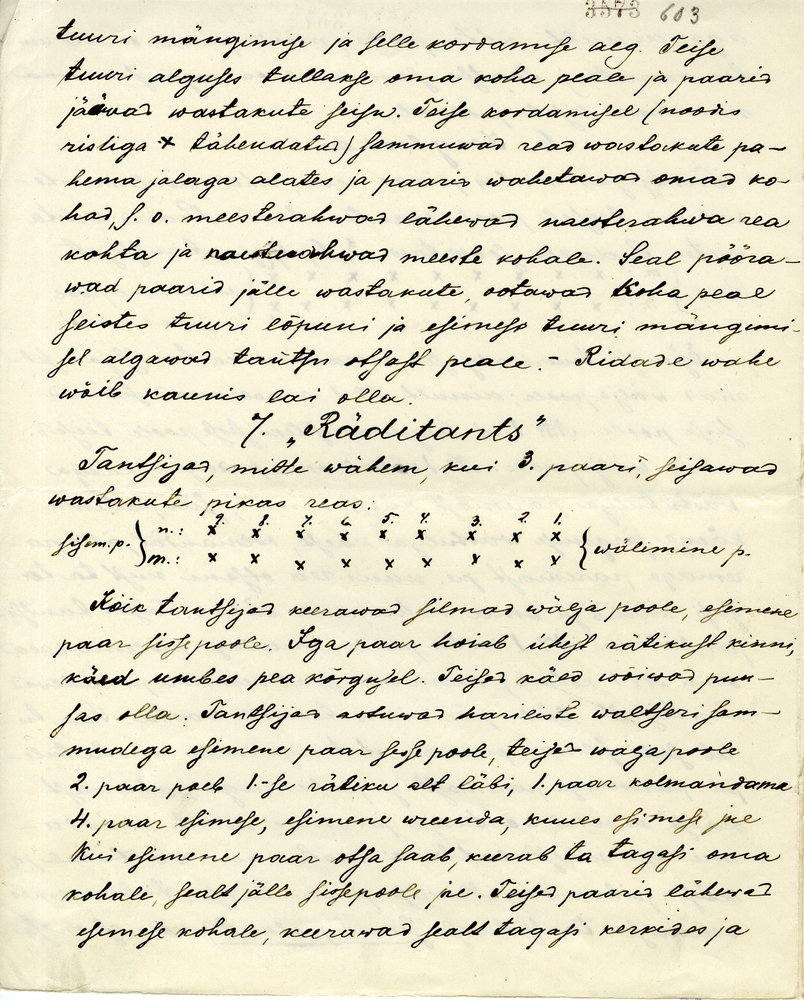 3573 603
tuuri mängimise ja selle kordamise aeg. Teise
tuuri alguses tullakse oma koha peale ja paarid
jääwad wastakute seisu. Teise kordamisel (noodis
ristiga + tähendatud) sammuwad read wastakute pa-
hema jalaga alates ja paarid wahetawad omad ko-
had, s. o. meesterahwad lähewad naesterahwa rea
kohta ja naesterahwad meeste kohale. Seal pööra-
wad paarid jälle wastakute, ootawad koha peal
seistes tuuri lõpuni ja esimese tuuri mängimi-
sel algawad tantsu otsast peale. - Ridade wahe
wõib kaunis lai olla.
7. „Räditants"
Tantsijad, mitte wähem, kui 3. paari, seisawad
wastakute pikas reas:
9. 8. 7. 6. 5. 4. 3. 2. 1.
sisem.p. } n.: x x x x x x x x x { wälimine p.
m.: x x x x x x x x x
Kõik tantsijad keerawad silmad wälja poole, esimene
paar sissepoole. Iga paar hoiab ühest rätikust kinni,
käed umbes pea kõrgusel. Teised käed wõiwad puu-
sas olla. Tantsijad astuwad hariliste waltseri sam-
mudega esimene paar sisse poole, teised wälja poole
2. paar poeb 1.-se rätiku alt läbi, 1. paar kolmandama
4. paar esimese, esimene wienda, kuues esimese jne
Kui esimene paar otsa saab, keerab ta tagasi oma
kohale, sealt jälle sissepoole jne. Teised paarid lähewad
esimese kohale, keerawad sealt tagasi kerkides ja